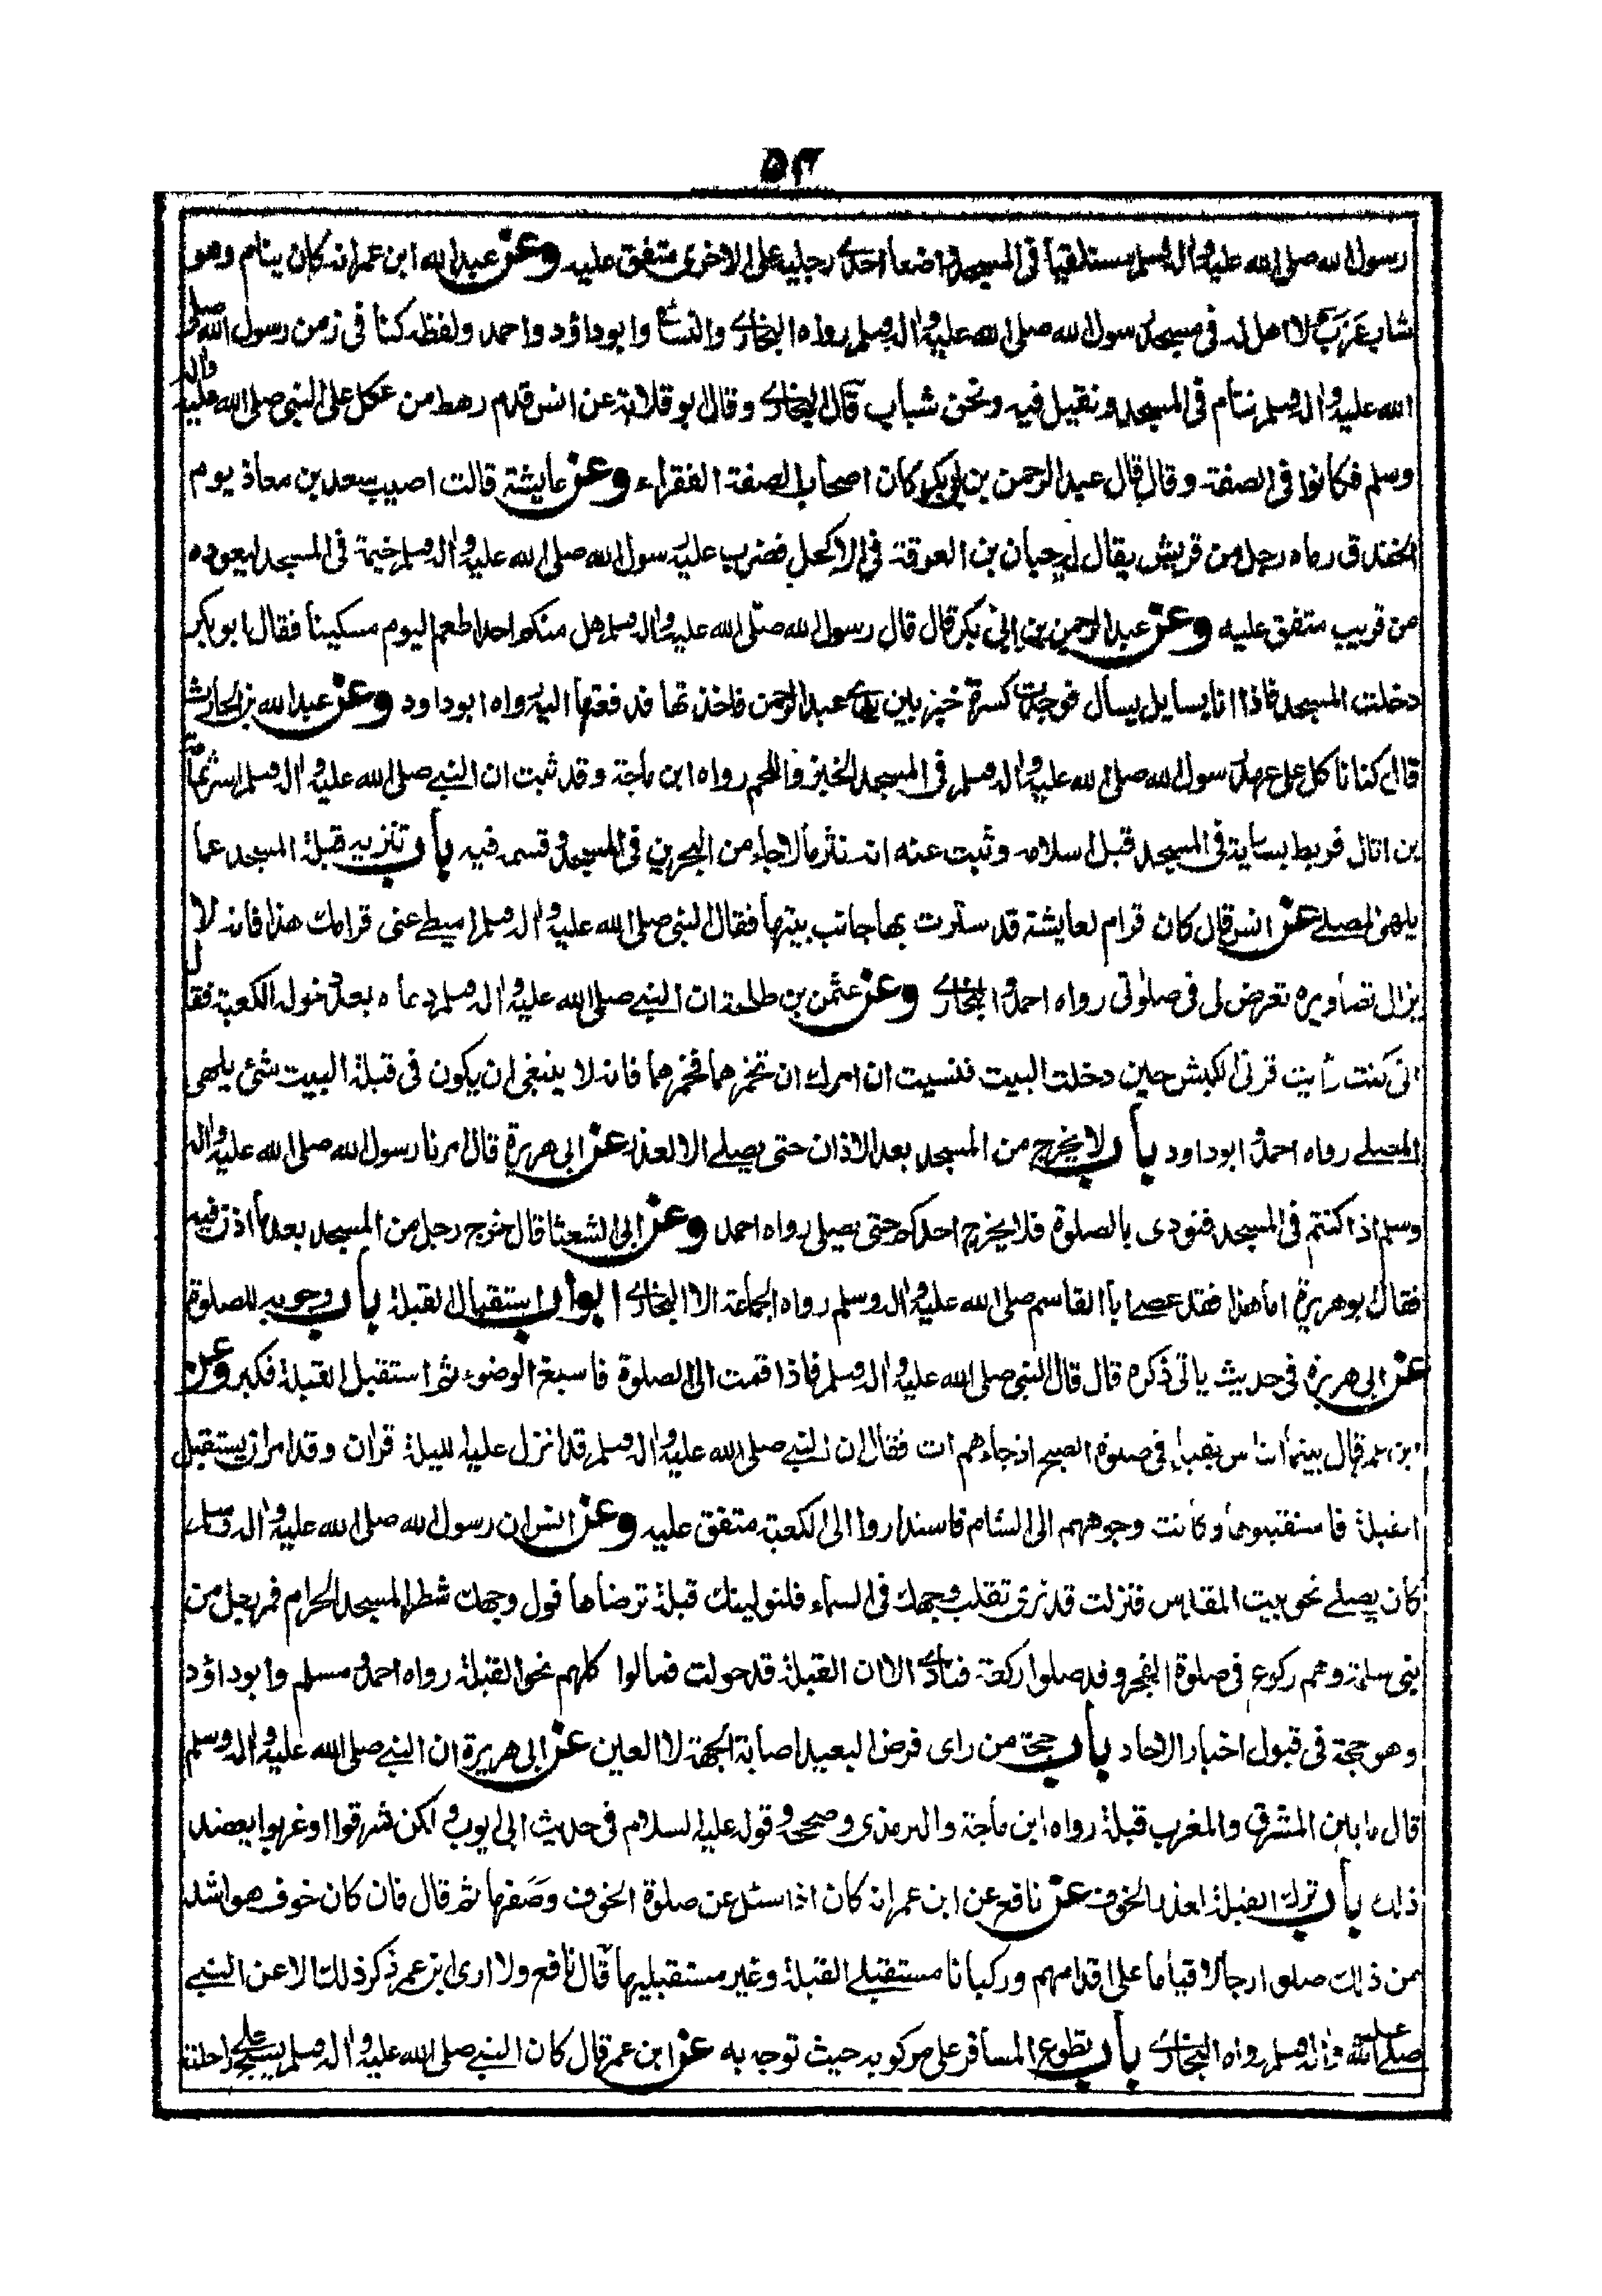 ٥٣
رسول الله صلى الله عليه واله وسلم مستلقيا فى المسجد واضعا احدى رجليه على الاخرى متفق عليه وعن عبد الله ابن عمر انه كان ينام وهو
شاب عزب لا اهل له فى مسجد رسول الله صلى الله عليه واله وسلم رواه البخارى والنسائى وابوداؤد واحمد ولفظه كنا فى زمن رسول الله صلى
الله عليه واله وسلم ننام فى المسجد ونقيل فيه ونحن شباب قال البخارى وقال ابو قلابة عن انس قدم رهط من عكل على النبى صلى الله عليه واله
وسلم فكانوا فى الصفة وقال قال عبد الرحمن بن ابى بكر كان اصحاب الصفة الفقراء وعن عايشة قالت اصيب سعد بن معاذ يوم
الخندق رماه رجل من قريش يقال له حبان بن العرقة فى الاكحل فضرب عليه رسول الله صلى الله عليه واله وسلم خيمة فى المسجد ليعوده
من قريب متفق عليه وعن عبد الرحمن بن ابى بكر قال قال رسول الله صلى الله عليه واله وسلم هل منكم احد اطعم اليوم مسكينا فقال ابوبكر
دخلت المسجد فاذا انا بسايل يسأل فوجدت كسرة خبز بين يدى عبد الرحمن فاخذتها فدفعتها اليه رواه ابوداود وعن عبد الله بن الحارث
قال كنا ناكل على عهد رسول الله صلى الله عليه واله وسلم فى المسجد الخبز واللحم رواه ابن ماجة وقد ثبت ان النبى صلى الله عليه واله وسلم اسر ثمامة
بن اثال فربط بسارية فى المسجد قبل اسلامه وثبت عنه انه نثر مالا جاء من البحرين فى المسجد وقسمه فيه باب تنزيه قبلة المسجد عما
يلهى المصلى عن انس قال كان قرام لعايشة قد سترت بها جانب بيتها فقال النبى صلى الله عليه واله وسلم اميطى عنى قرامك هذا فانه لا
يزال تصاويره تعرض لى فى صلوتى رواه احمد والبخارى وعن عثمن بن طلحة ان النبى صلى الله عليه واله وسلم دعاه بعد دخوله الكعبة فقال
انى كنت رأيت قرنى الكبش حين دخلت البيت فنسيت ان امرك ان تخمرهما فخمرهما فانه لا ينبغى ان يكون فى قبلة البيت شئ يلهى
المصلى رواه احمد وابوداود باب لا يخرج من المسجد بعد الاذان حتى يصلى الا لعذر عن ابى هريرة قال امرنا رسول الله صلى الله عليه واله
وسلم اذا كنتم فى المسجد فنودى بالصلوة فلا يخرج احدكم حتى يصلى رواه احمد وعن ابى الشعثا قال خرج رجل من المسجد بعد ما اذن فيه
فقال ابو هريرة اما هذا فقد عصا ابا القاسم صلى الله عليه واله وسلم رواه الجماعة الا البخارى ابواب استقبال القبلة باب وجوبه للصلوة
عن ابى هريرة فى حديث ياتى ذكره قال قال النبى صلى الله عليه واله وسلم فاذا قمت الى الصلوة فاسبغ الوضوء ثم استقبل القبلة فكبر وعن
ابن عمر قال بينما الناس بقباء فى صلوة الصبح اذ جاءهم ات فقال ان النبى صلى الله عليه واله وسلم قد انزل عليه الليلة قران وقد امر ان يستقبل
القبلة فاستقبلوها وكانت وجوههم الى الشام فاستداروا الى الكعبة متفق عليه وعن انس ان رسول الله صلى الله عليه واله وسلم
كان يصلى نحو بيت المقدس فنزلت قد نرى تقلب وجهك فى السماء فلنولينك قبلة ترضاها فول وجهك شطر المسجد الحرام فمر رجل من
بنى سلمة وهم ركوع فى صلوة الفجر وقد صلوا ركعة فنادى الا ان القبلة قد حولت فمالوا كلهم نحو القبلة رواه احمد ومسلم وابوداؤد
وهو حجة فى قبول اخبار الاحاد باب حجة من راى فرض البعيد اصابة الجهة لا العين عن ابى هريرة ان النبى صلى الله عليه واله وسلم
قال ما بين المشرق والمغرب قبلة رواه ابن ماجة والترمذى وصححه وقوله عليه السلام فى حديث ابى ايوب ولكن شرقوا او غربوا يعضد
ذلك باب ترك القبلة لعذر الخوف عن نافع عن ابن عمر انه كان اذا سئل عن صلوة الخوف وصفها ثم قال فان كان خوف هو اشد
من ذلك صلوا رجالا قياما على اقدامهم وركبانا مستقبلى القبلة وغير مستقبليها قال نافع ولا ارى ابن عمر ذكر ذلك الا عن النبى
صلى الله عليه واله وسلم رواه البخارى باب تطوع المسافر على مركوبه حيث توجه به عن ابن عمر قال كان النبى صلى الله عليه واله وسلم يسبح على راحلته